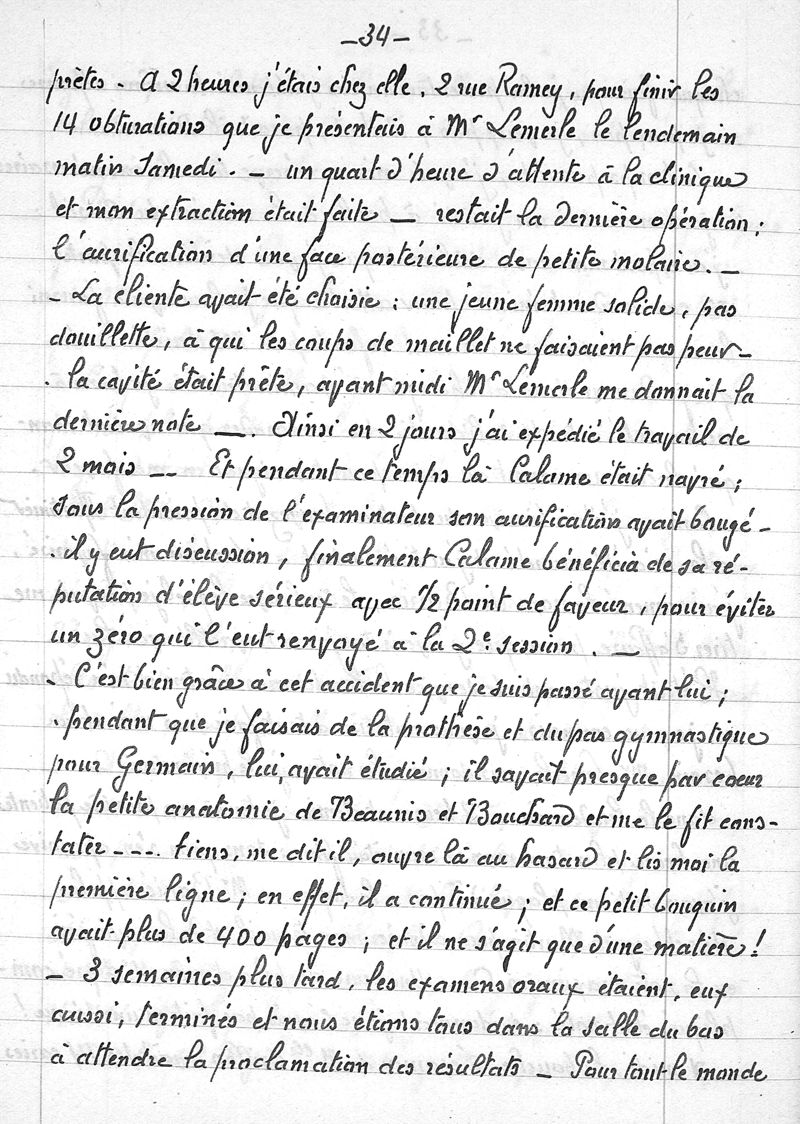 _34_
prètes. A 2 heures j'étais chez elle, 2 rue Ramey, pour finir les
14 obturations que je présentais à Mr Lemerle le lendemain
matin Samedi. _ un quart d'heure d'attente à la clinique
et mon extraction était faite _ restait la dernière opération;
l'aurification d'une face postérieure de petite molaire. _
_ La cliente avait été choisie: une jeune femme solide, pas
douillette, à qui les coups de maillet ne faisaient pas peur_
. la cavité était prête, avant midi Mr Lemerle me donnait la
dernière note _. Ainsi en 2 jours j'ai expédié le travail de
2 mois __ Et pendant ce temps là Calame était navré;
sous la pression de l'examinateur son aurification avait bougé_
. il y eut discussion, finalement Calame bénéficia de sa ré-
putation d'élève sérieux avec 1/2 point de faveur, pour éviter
un zéro qui l'eut renvoyé à la 2e session. _
_ C'est bien grâce à cet accident que je suis passé avant lui;
. pendant que je faisais de la prothèse et du pas gymnastique
pour Germain, lui, avait étudié; il savait presque par coeur
la petite anatomie de Beaunis et Bouchard et me le fit cons-
tater ---. tiens, me dit il, ouvre là au hasard et lis moi la
première ligne; en effet, il a continué; et ce petit bouquin
avait plus de 400 pages; et il ne s'agit que d'une matière!
_ 3 semaines plus tard, les examens oraux étaient, eux
aussi, terminés et nous étions tous dans la salle du bas
à attendre la proclamation des résultats _ Pour tout le monde